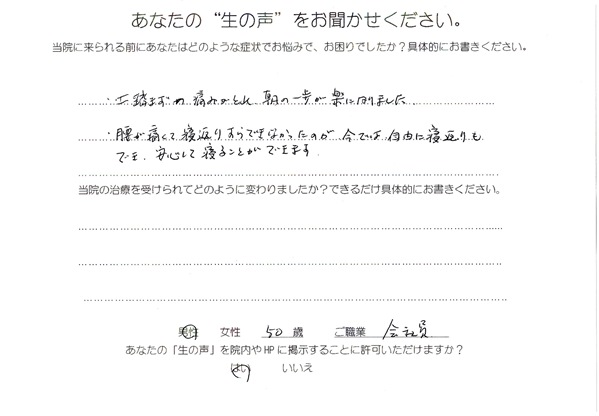 あなたの“生の声”をお聞かせください。
当院に来られる前にあなたはどのような症状でお悩みで、お困りでしたか?具体的にお書きください。
・ 痛みがとれ 朝の一歩が楽になりました
・腰が痛くて寝返りすらできなかったのが 今では自由に寝返りも
でき、安心して寝ることができます
当院の治療を受けられてどのように変わりましたか?できるだけ具体的にお書きください。
男性 女性 50 歳 ご職業 会社員
あなたの「生の声」を院内やHPに掲示することに許可いただけますか?
はい いいえ